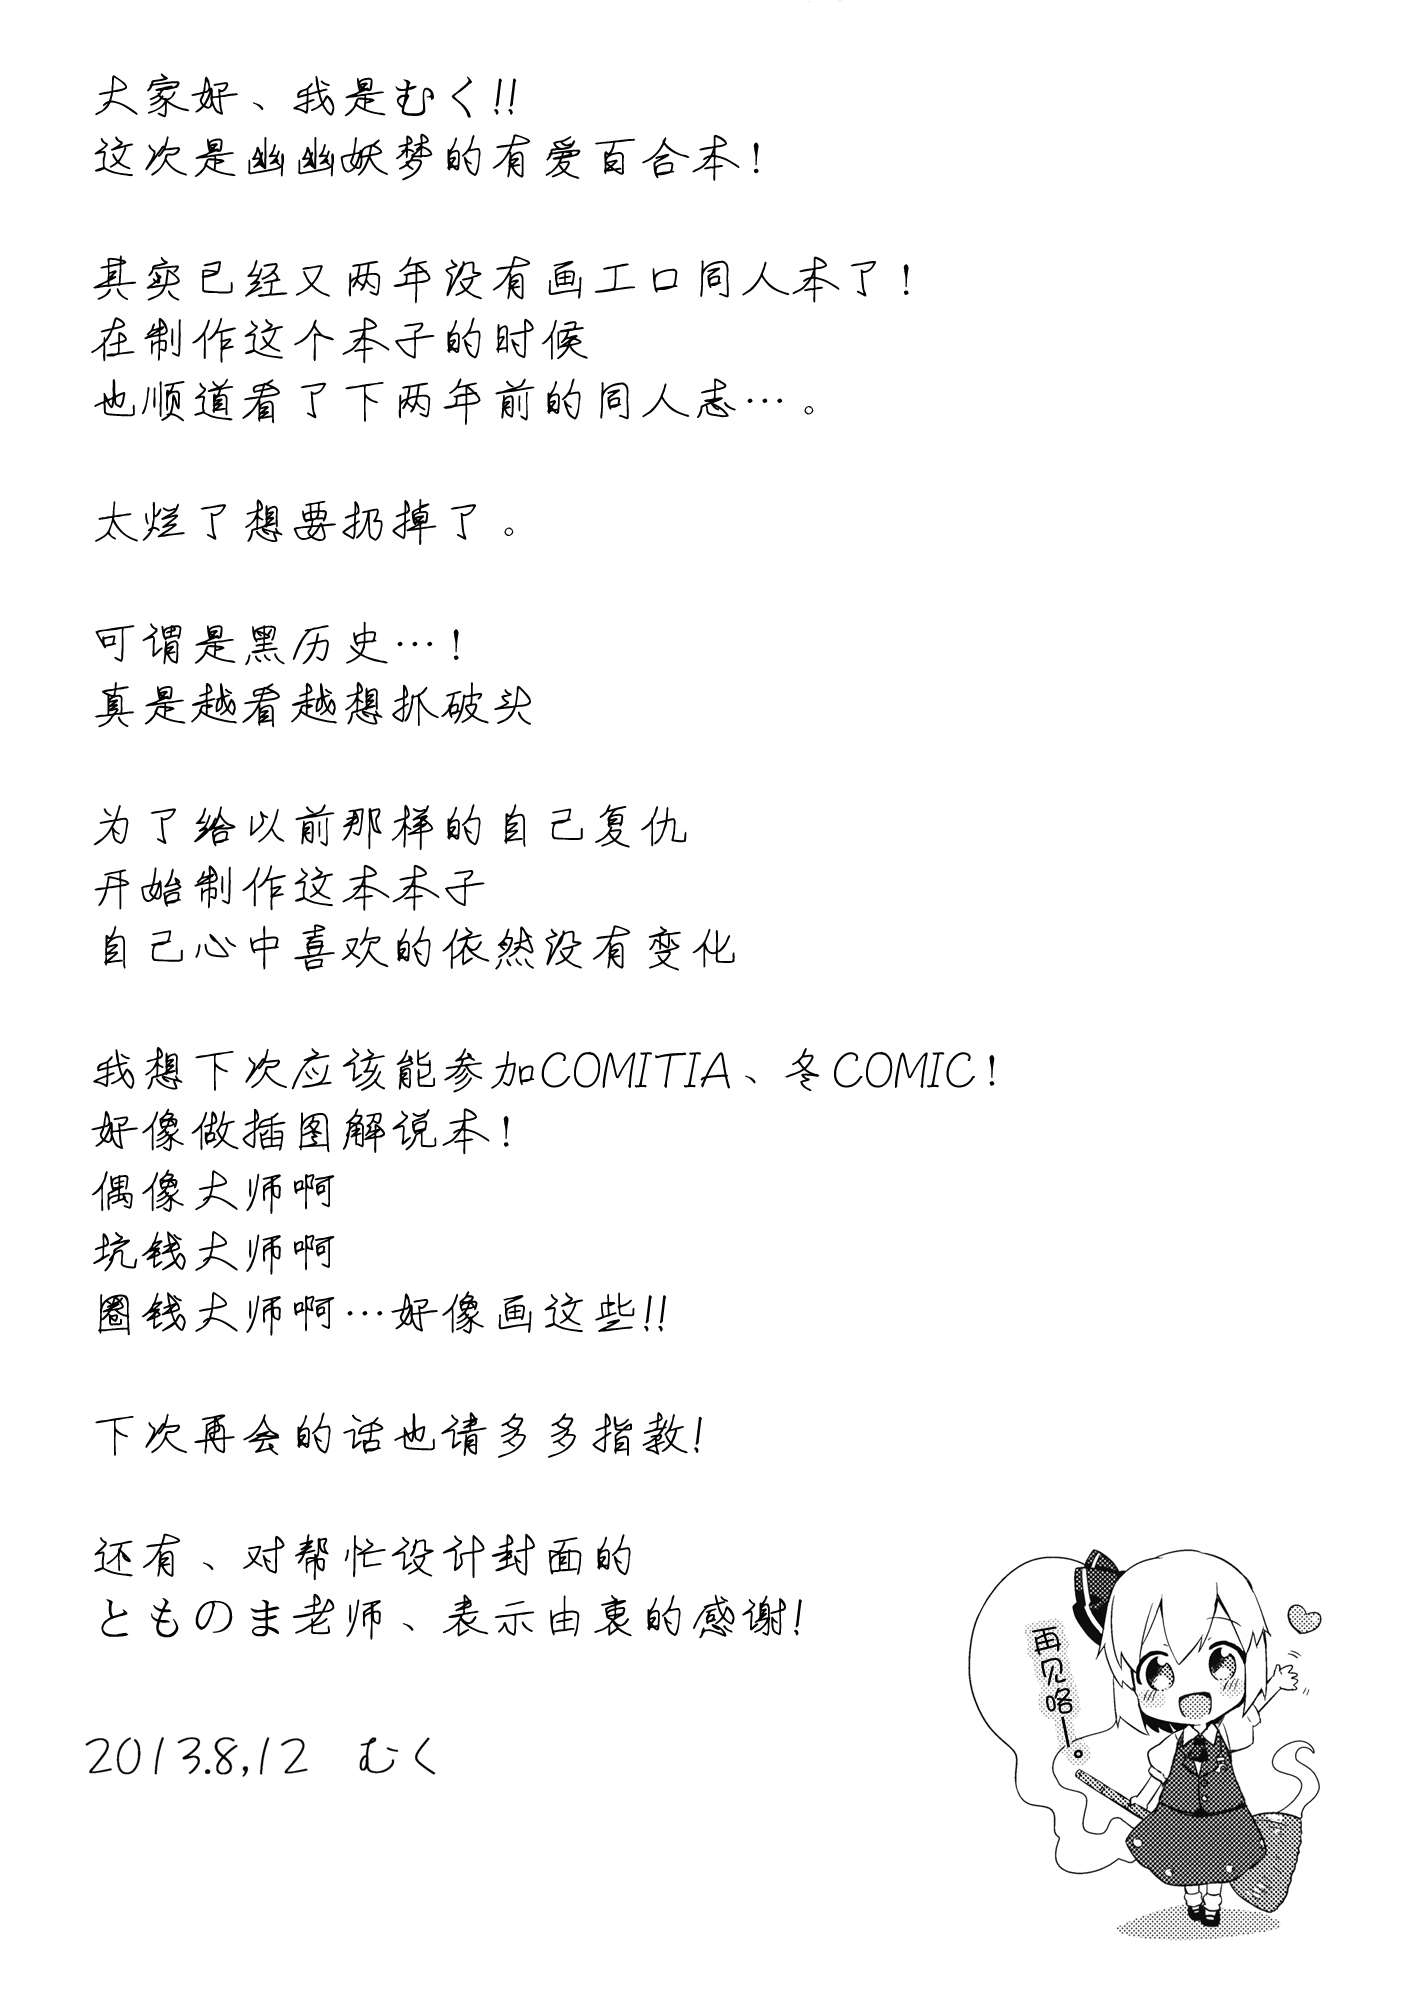 大家好、我是むく!!
这次是幽幽妖梦的有爱百合本!
其实已经又两年没有画工口同人本了!
在制作这个本子的时候
也顺道看了下两年前的同人志…。
太烂了想要扔掉了。
可谓是黑历史…!
真是越看越想抓破头
为了给以前那样的自己复仇
开始制作这本本子
自己心中喜欢的依然没有变化
我想下次应该能参加COMITIA、冬COMIC!
好像做插图解说本!
偶像大师啊
坑钱大师啊
圈钱大师啊…好像画这些!!
下次再会的话也请多多指教!
还有、对帮忙设计封面的
とものま老师、表示由衷的感谢!
再见咯—。
2013.8,12 むく